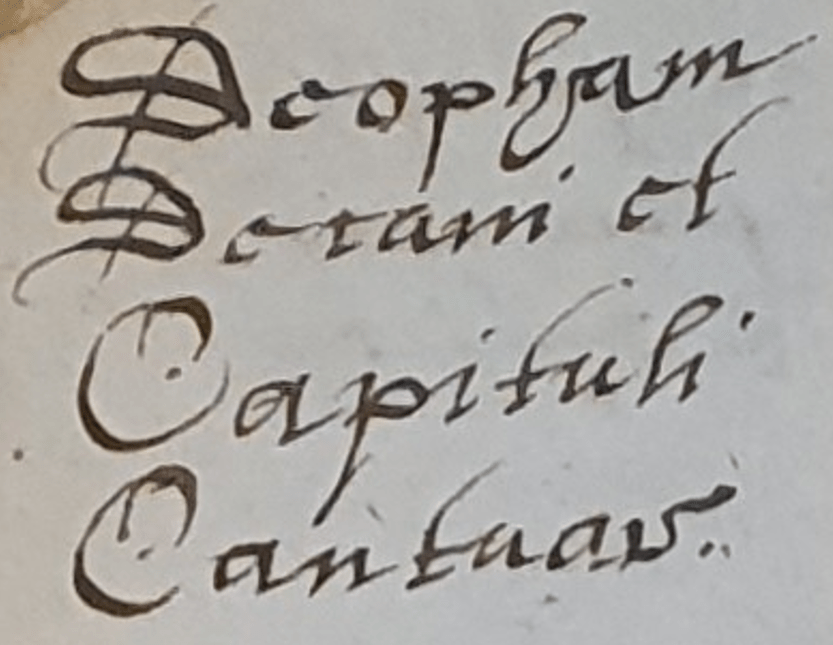 Deopham
Decani et
Capituli
Cantuar: